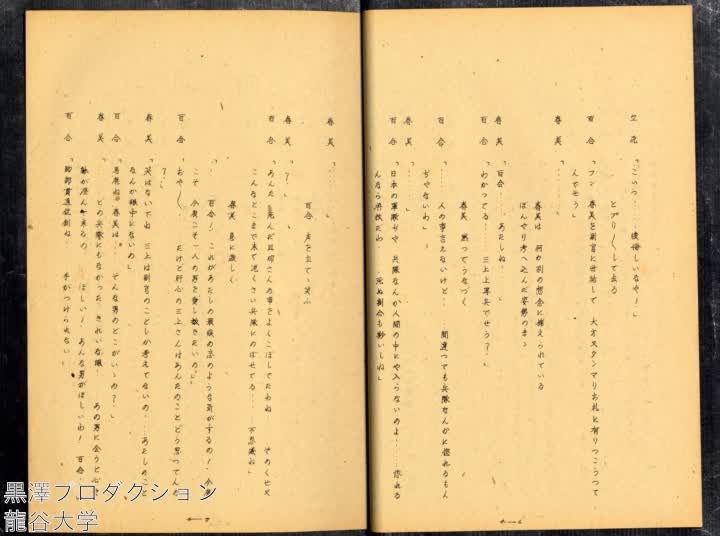 立花 「こいつ 後悔しいなや！」
とプリ〳〵して去る
百合 「フン 春美を副官に世話して 大方スタンマリお札に有りつこうつて
んでせう」
春美 「……」
春美は 何か別の想念に捕えられている
ぼんやり考へ込んだ姿勢のまゝ
春美 「百合 あたしね…」
百合 「わかってる… 三上上等兵でせう？」
春美 黙ってうなづく
百合 「……人の事言えないけど… 間違つても兵隊なんかに惚れるもん
ぢやないわ」
春美 「……」
百合 「日本の軍隊ぢや 兵隊なんか人間の中にや入らないのよ… 惚れる
んなら将校だわ… 死ぬ割合も勘いしね」
春美 「……」
百合 声を立てゝ笑ふ
春美 「？」
百合 「あんた 死んだ
さんの事をよくこぼしてたわね そのくせ又
こんなとこまで来て泥くさい兵隊にのぼせてる… 不思議ね」
春美 急に激しく
「百合！ これがあたしの最後の恋のような気がするの！ 今度
こそ 今度こそ一人の男を愛し抜きたいの」
百合 「おや〳〵 だけど肝心の三上さんはあんたのことどう思つてんの
？」
春美 「笑はないでね 三上は副官のことしか考えてないの… あたしのこと
なんか眼中にないの」
百合 「見農ね 春美は そんな男のどこがいゝの？」
春美 「どの兵隊にもなかった きれいな眼 あの男に会うと心
動が澄んで来るの ほしい！ あんな男がほしいわ！ 百合」
百合 「胸部貫通銃創ね 手がつけられない」
6
7
黒澤プロダクション
龍谷大学